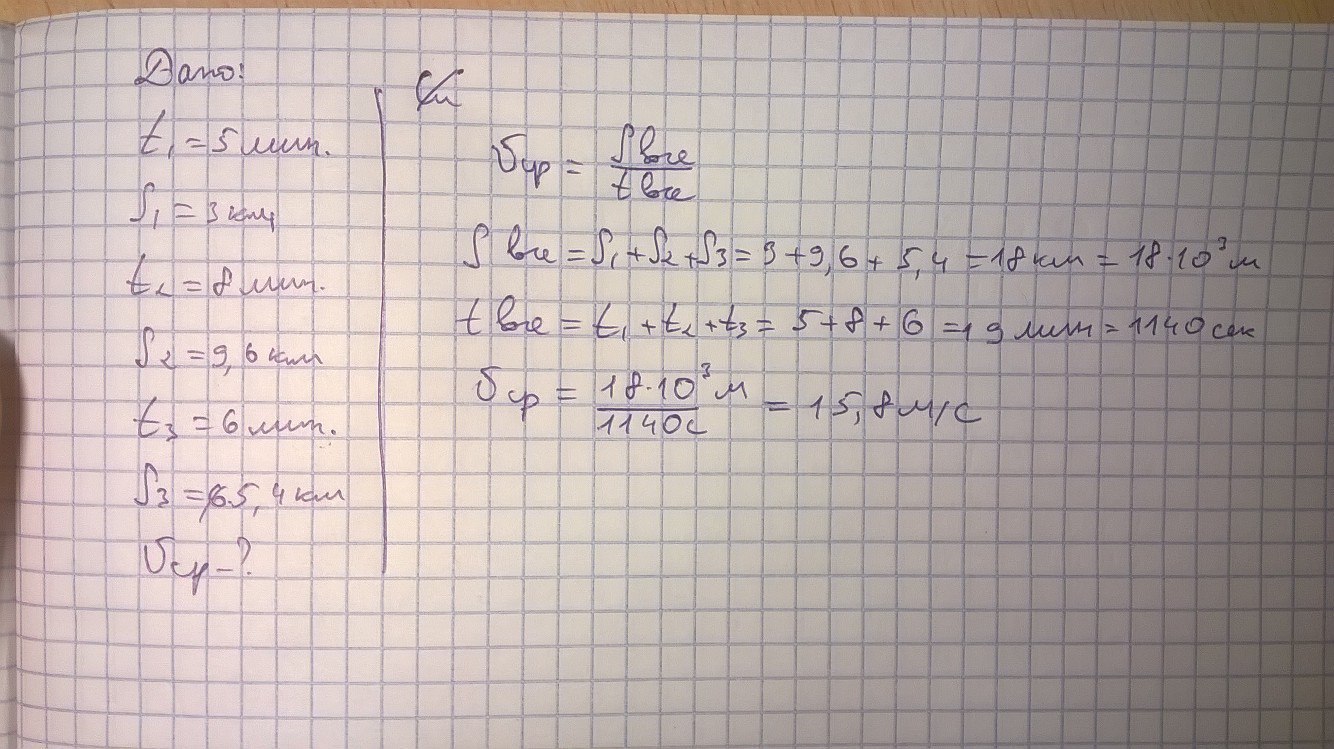 Дано:
t₁ = 5 мин.
S₁ = 3 км
t₂ = 8 мин.
S₂ = 9,6 км
t₃ = 6 мин.
S₃ = 5,4 км
υср – ?
υср = Sвсе / tвсе
Sвсе = S₁ + S₂ + S₃ = 3 + 9,6 + 5,4 = 18 км = 18·10³ м
tвсе = t₁ + t₂ + t₃ = 5 + 8 + 6 = 19 мин = 1140 сек
υср = 18·10³ м / 1140 с = 15,8 м/с